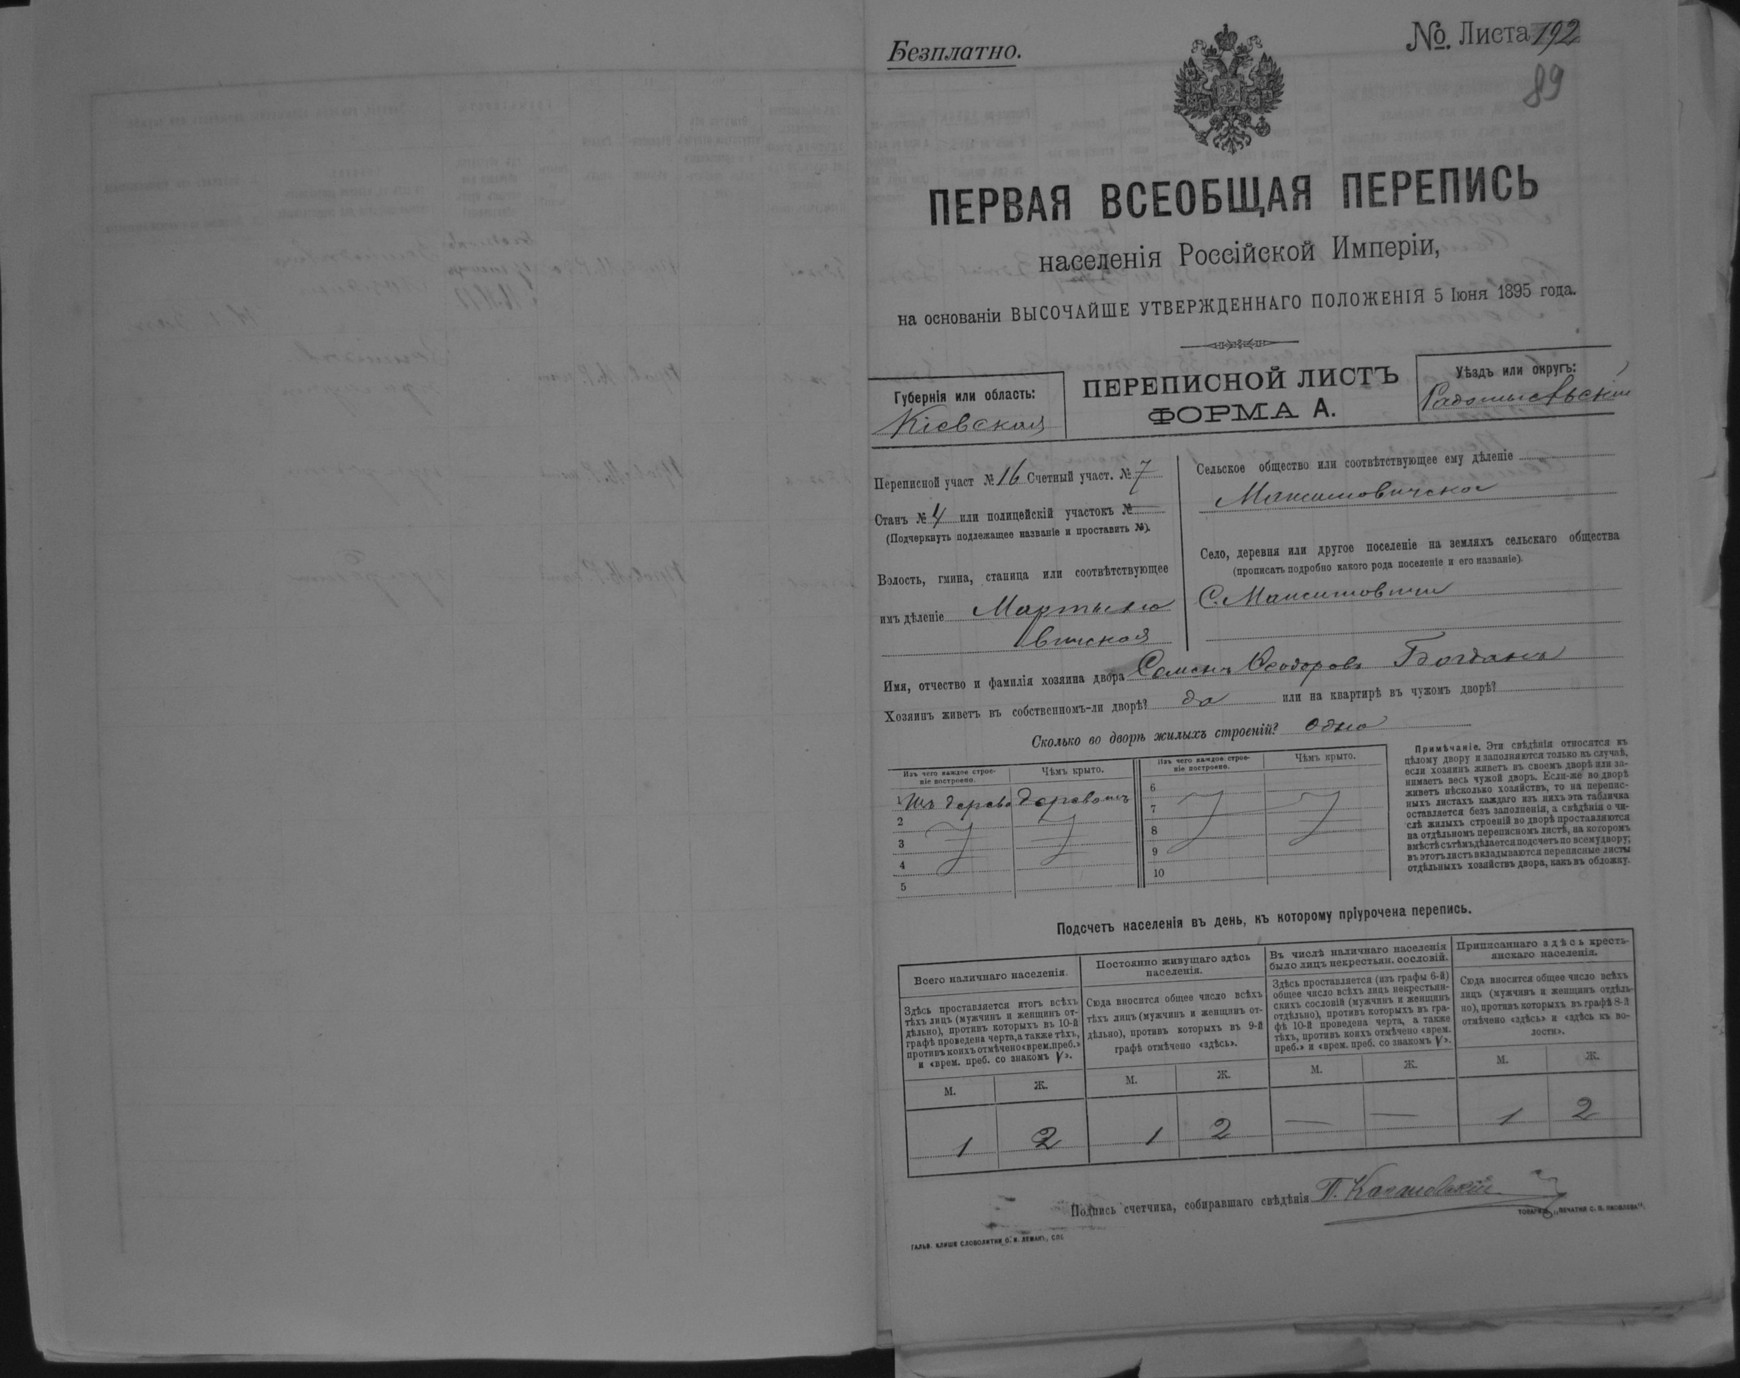 Безплатно.
№ Листа 192
89
ПЕРВАЯ ВСЕОБЩАЯ ПЕРЕПИСЬ
населенія Россійской Имперіи,
на основаніи ВЫСОЧАЙШЕ УТВЕРЖДЕННАГО ПОЛОЖЕНІЯ 5 Іюня 1895 года.
Губернія или область:
Кіевская
ПЕРЕПИСНОЙ ЛИСТЪ
ФОРМА А.
Уѣздъ или округъ:
Радомысльскій
Переписной участ № 16 Счетный участ. № 7
Станъ № 4 или полицейскій участокъ №
(Подчеркнуть подлежащее названіе и проставить №).
Волость, гмина, станица или соотвѣтствующее
имъ дѣленіе Мартыно
вичская
Сельское общество или соотвѣтствующее ему дѣленіе
Максимовичское
Село, деревня или другое поселеніе на земляхъ сельскаго общества
(прописать подробно какого рода поселеніе и его названіе).
С. Максимовичи
Имя, отчество и фамилія хозяина двора Семенъ Ѳеодоровъ Богданъ
Хозяинъ живетъ въ собственномъ-ли дворѣ? да или на квартирѣ въ чужомъ дворѣ?
Сколько во дворѣ жилыхъ строеній? Одно
Изъ чего каждое строе-
ніе построено.
Чѣмъ крыто.
1 Изъ дерева деревомъ
2
3
4
5
Изъ чего каждое строе-
ніе построено.
Чѣмъ крыто.
6
7
8
9
10
Примѣчаніе. Эти свѣдѣнія относятся къ
цѣлому двору и заполняются только въ случаѣ,
если хозяинъ живетъ въ своемъ дворѣ или за-
нимаетъ весь чужой дворъ. Если-же во дворѣ
живетъ нѣсколько хозяйствъ, то на перепис-
ныхъ листахъ каждаго изъ нихъ эта табличка
оставляется безъ заполненія, а свѣдѣнія о чи-
слѣ жилыхъ строеній во дворѣ проставляются
на отдѣльномъ переписномъ листѣ, на которомъ
вмѣстѣ съ тѣмъ дѣлается подсчетъ по всему двору;
въ этотъ листъ вкладываются переписные листы
отдѣльныхъ хозяйствъ двора, какъ въ обложку.
Подсчетъ населенія въ день, къ которому пріурочена перепись.
Всего наличнаго населенія.
Здѣсь проставляется итогъ всѣхъ
тѣхъ лицъ (мужчинъ и женщинъ от-
дѣльно), противъ которыхъ въ 10-й
графѣ проведена черта, а также тѣхъ,
противъ коихъ отмѣчено «врем. преб.»
и «врем. преб. со знакомъ V».
М. Ж.
1 2
Постоянно живущаго здѣсь
населенія.
Сюда вносится общее число всѣхъ
тѣхъ лицъ (мужчинъ и женщинъ от-
дѣльно), противъ которыхъ въ 9-й
графѣ отмѣчено «здѣсь».
М. Ж.
1 2
Въ числѣ наличнаго населенія
было лицъ некрестьян. сословій.
Здѣсь проставляется (изъ графы 6-й)
общее число всѣхъ лицъ некрестьян-
скихъ сословій (мужчинъ и женщинъ
отдѣльно), противъ которыхъ въ гра-
фѣ 10-й проведена черта, а также
тѣхъ, противъ коихъ отмѣчено «врем.
преб.» и «врем. преб. со знакомъ V».
М. Ж.
— —
Приписаннаго здѣсь кресть-
янскаго населенія.
Сюда вносится общее число всѣхъ
лицъ (мужчинъ и женщинъ отдѣль-
но), противъ которыхъ въ графѣ 8-й
отмѣчено «здѣсь» и «здѣсь въ во-
лости».
М. Ж.
1 2
Подпись счетчика, собиравшаго свѣдѣнія П.
ГАЛЬВ. КЛИШЕ СЛОВОЛИТНИ О. И. ЛЕМАНЪ, СПБ
ТОВАРИЩ. „ПЕЧАТНЯ С. П. ЯКОВЛЕВА".